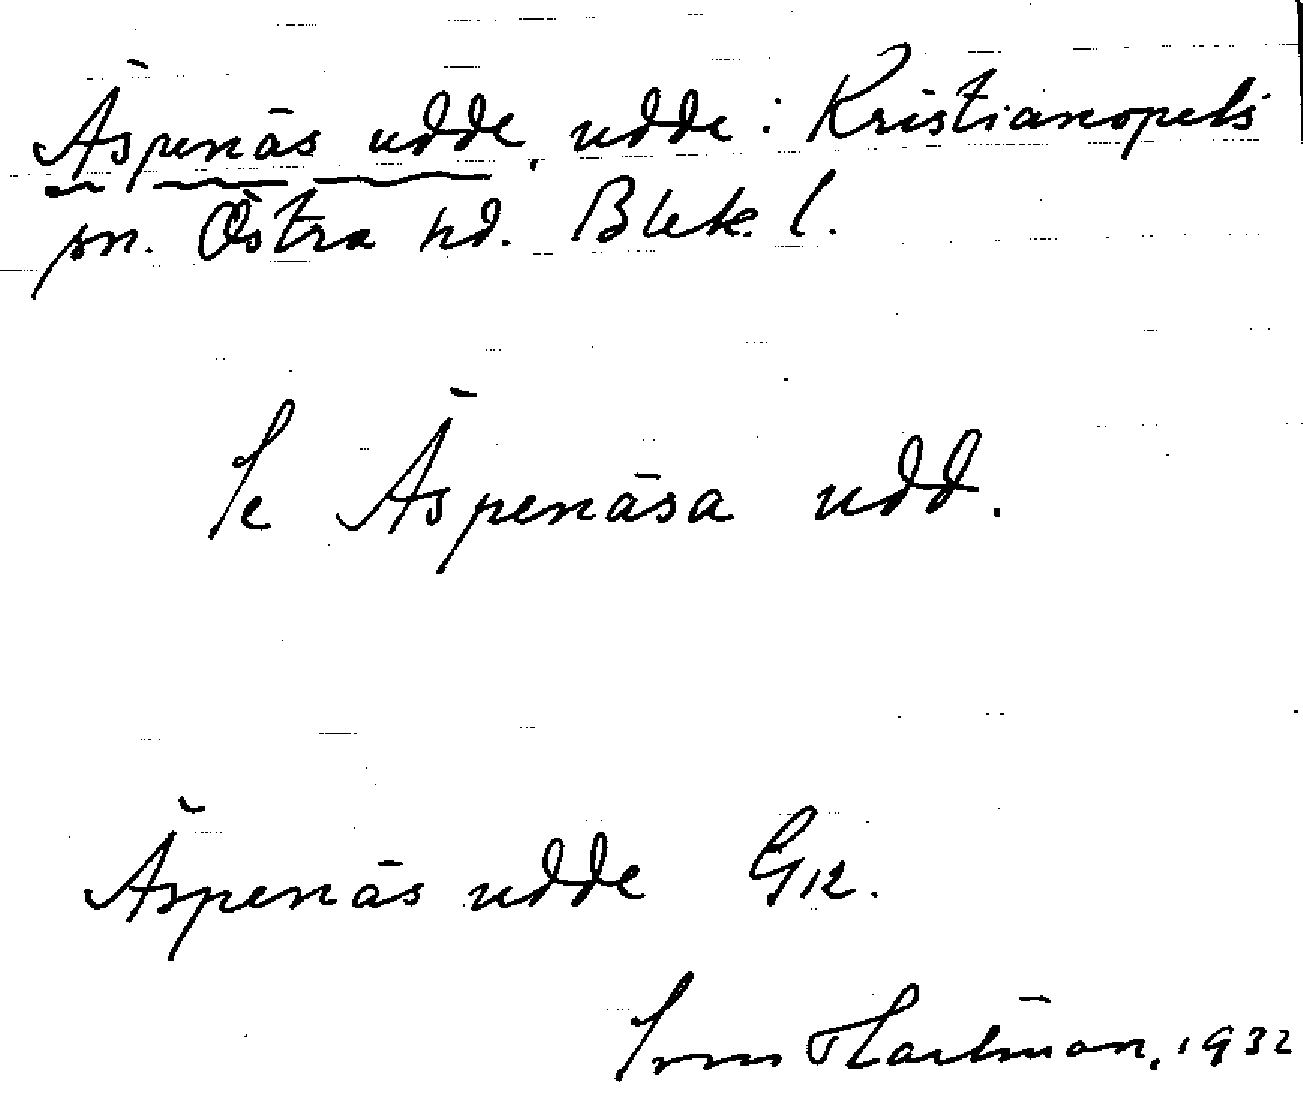 Äspenäs udde, udde: Kristianopels
sn. Östra hd. Blek. l.
Se Äspenäsa udd.
Äspenäs udde GK.
Hartman, 1932